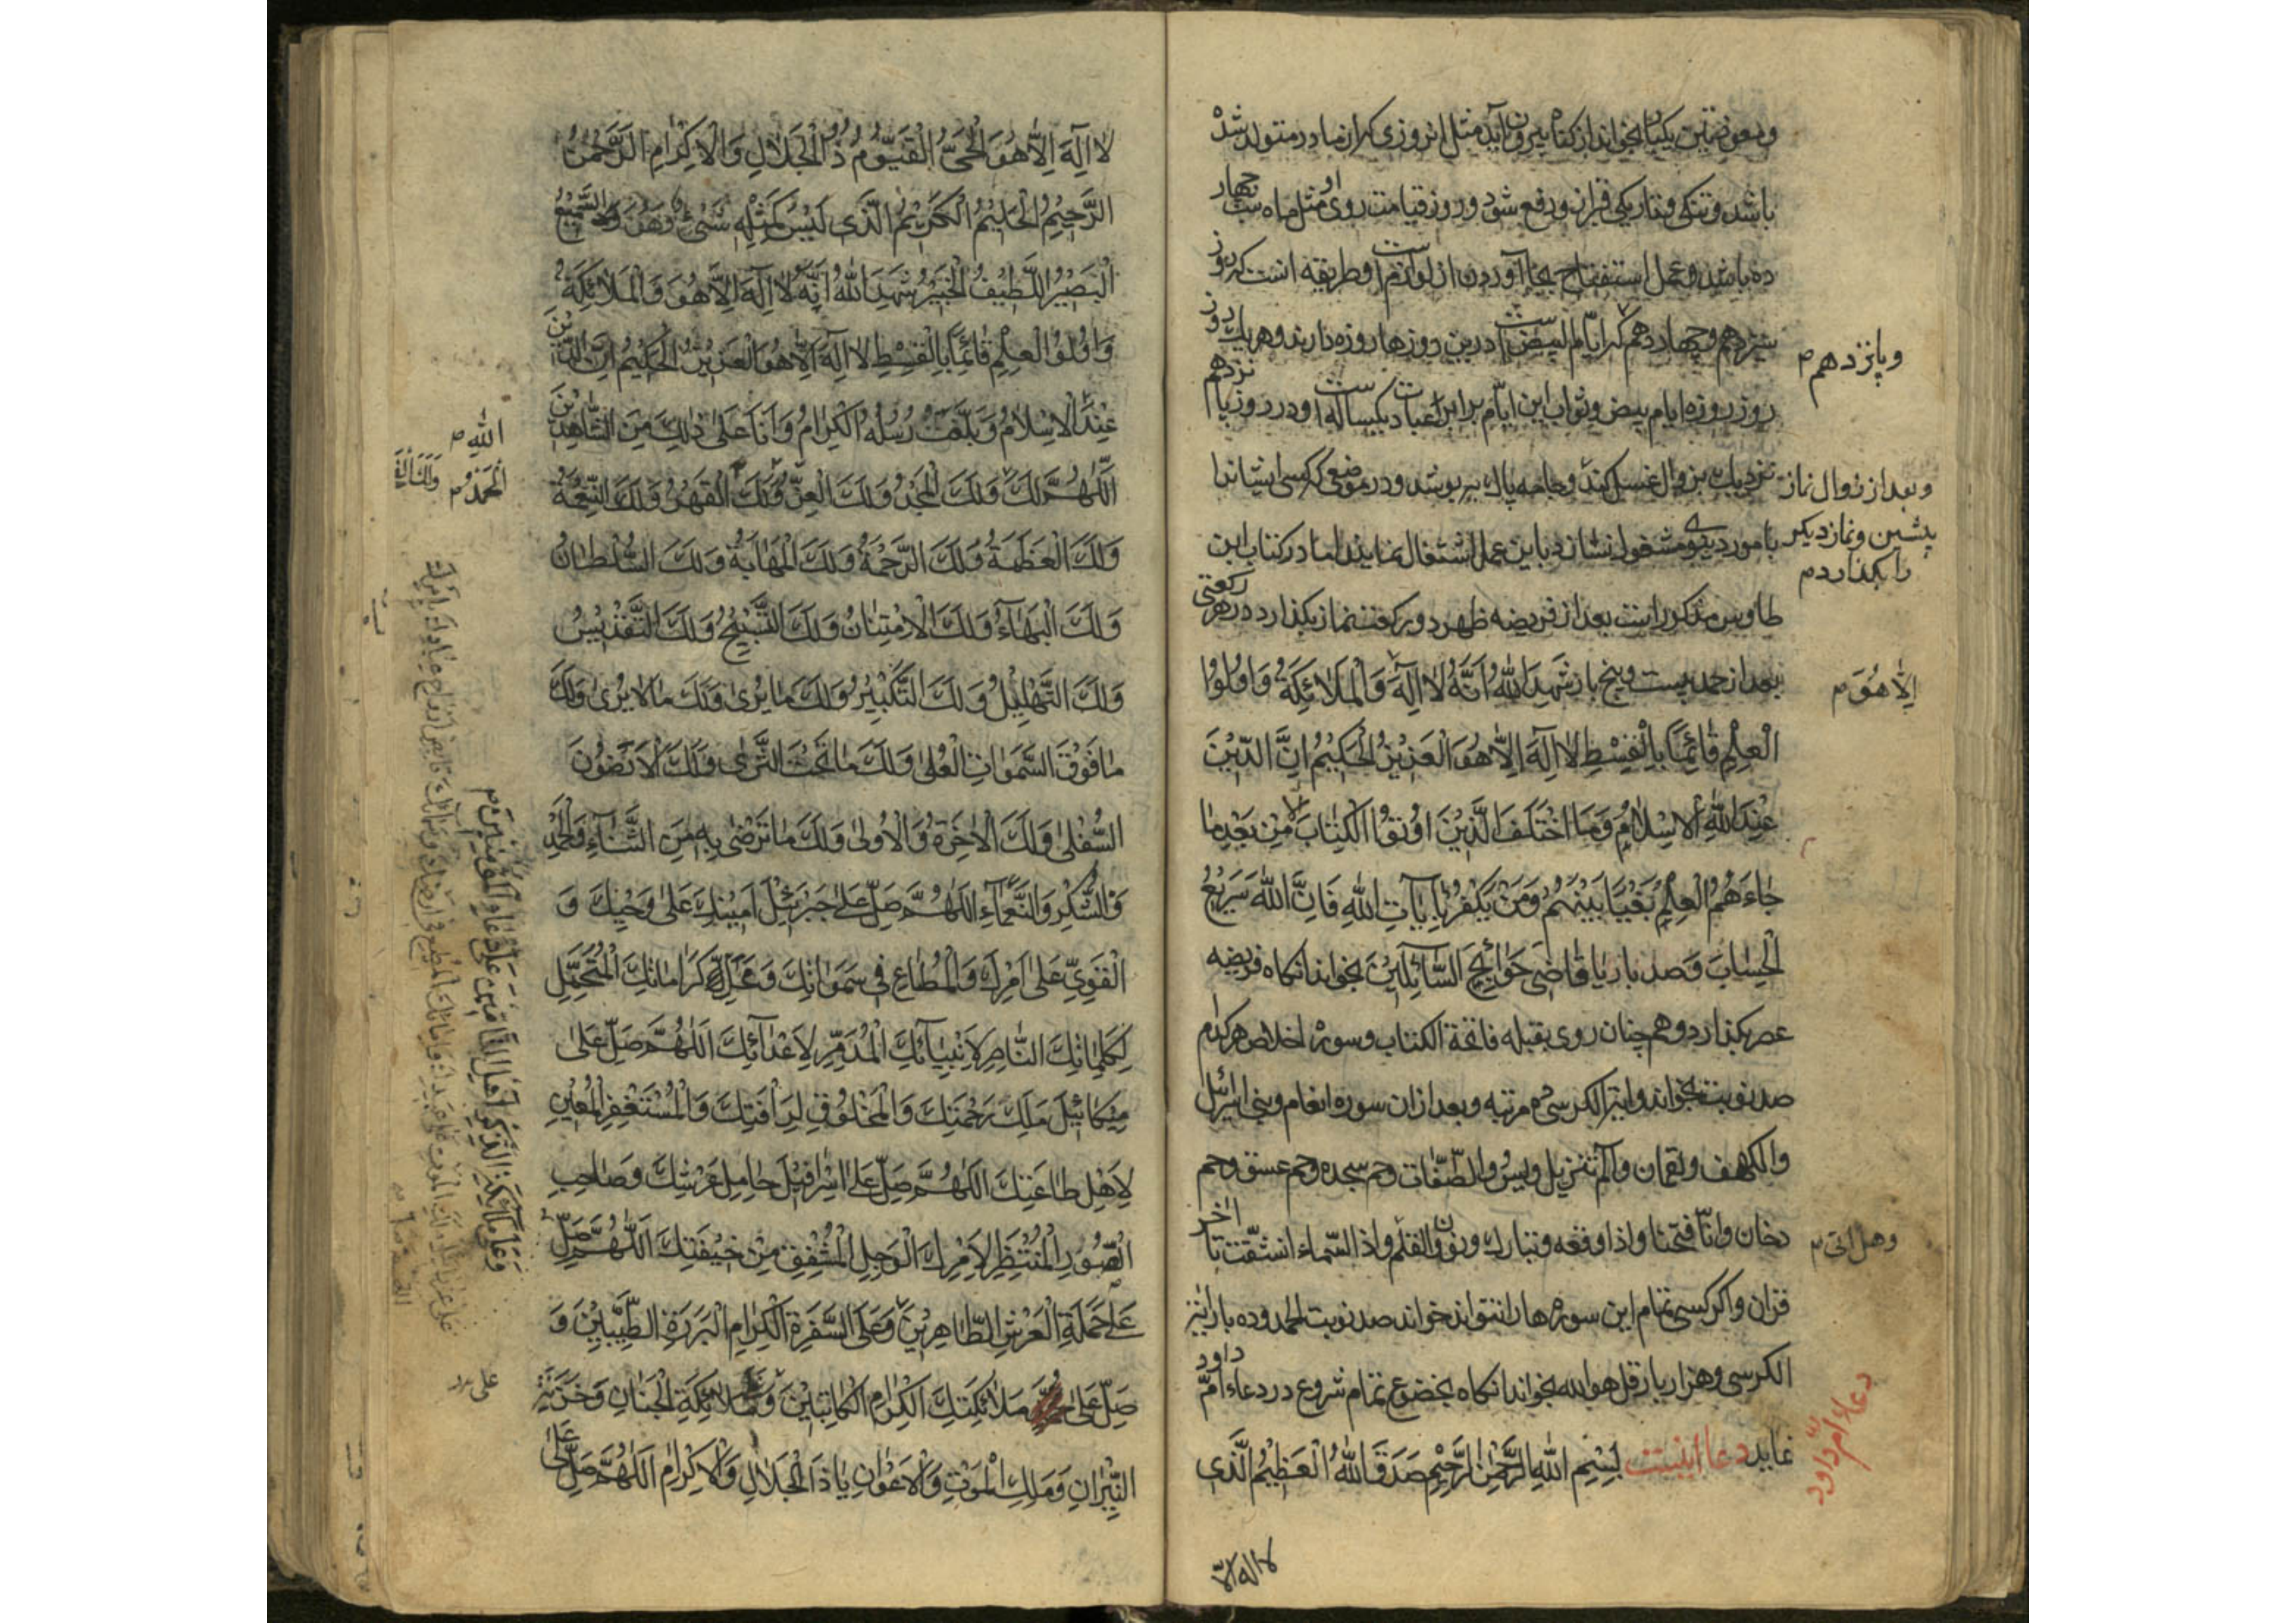 ومعوذتین یکبار بخواند از کناه بیرون آید مثل انروزی که از مادر متولد شده
باشد و تنکی و تاریکی قبر ازو رفع شود و روز قیامت روی او مثل ماه شب چهار
ده باشد و عمل استفتاح بجا آوردن از لوازم است و طریقه انست که روز
سیزدهم و چهاردهم که ایام البیض است درین روزها روزه دارند و هر یک روز
ویانزدهم م
روز روزه ایام بیض و ثواب این ایام برابر عبادت یکساله است و در روز پانزدهم
نزدیک بزوال غسل کند و جامه پاک بپوشد و در موضعی که کسی انشاندا
وبعد از زوال نماز
پیشین ونماز دیکر
را بکذارد م
بامور دیکری مشغول نشاند باین عمل اشتغال نمایند اما در کتاب ابن
طاوس مذکور است بعد از فریضه ظهر دو رکعت نماز بکذارد در هر رکعتی
بعد از حمد بیست و پنج بار شَهِدَ اللهُ اَنَّهُ لا اِلٰهَ وَالْمَلائِکَةُ وَاُولُوا
اِلّا هُوَ م
الْعِلْمِ قائِمًا بِالْقِسْطِ لا اِلٰهَ اِلّا هُوَ الْعَزیزُ الْحَکیمُ اِنَّ الدّینَ
عِنْدَ اللهِ الْاِسْلامُ وَمَا اخْتَلَفَ الَّذینَ اُوتُوا الْکِتابَ اِلّا مِنْ بَعْدِ ما
جاءَهُمُ الْعِلْمُ بَغْیًا بَیْنَهُمْ وَمَنْ یَکْفُرْ بِآیاتِ اللهِ فَاِنَّ اللهَ سَریعُ
الْحِسابَ وصد بار یا قاضِیَ حَوائِجَ السّائِلینَ بخواند انکاه فریضه
عصر بکذارد و هم چنان روی بقبله فاتحة الکتاب و سوره اخلاص هر کدام
صد نوبت بخواند و ایة الکرسی ده مرتبه و بعد ازان سوره انعام و بنی اسرائل
والکهف و لقمان و الم تنزیل و یس و الصّافّات و حم سجده و حم عسق و حم
دخان و انّا فتحنا و اذا وقعه و تبارک و ن والقلم و اذا السّماء انشقّت تا اخر
وهل اتی م
قران و اکر کسی تمام این سوره ها را نتواند خواند صد نوبت الحمد و ده بار ایة
الکرسی و هزار بار قل هو الله بخواند انکاه بخضوع تمام شروع در دعاء امّ داود
نماید دعا اینست بِسْمِ اللهِ الرَّحْمٰنِ الرَّحیمِ صَدَقَ اللهُ الْعَظیمُ الَّذی
دعاء امّ داود
لا اله الّا
لا اِلٰهَ اِلّا هُوَ الْحَیُّ الْقَیُّومُ ذُو الْجَلالِ وَالْاِکْرامِ الرَّحْمٰنُ
الرَّحیمُ الْحَلیمُ الْکَریمُ الَّذی لَیْسَ کَمِثْلِهِ شَیْءٌ وَهُوَ السَّمیعُ
الْبَصیرُ اللَّطیفُ الْخَبیرُ شَهِدَ اللهُ اَنَّهُ لا اِلٰهَ اِلّا هُوَ وَالْمَلائِکَةُ
وَاُولُوا الْعِلْمِ قائِمًا بِالْقِسْطِ لا اِلٰهَ اِلّا هُوَ الْعَزیزُ الْحَکیمُ اِنَّ الدّینَ
عِنْدَ الْاِسْلامُ وَبَلَّغَتْ رُسُلُهُ الْکِرامُ وَاَنَا عَلٰی ذٰلِکَ مِنَ الشّاهِدینَ
الله م
اَللّٰهُمَّ لَکَ وَلَکَ الْمَجْدُ وَلَکَ الْعِزُّ وَلَکَ الْقَهْرُ وَلَکَ النِّعْمَةُ
الْحَمْدُ م
وَلَکَ الْعَظَمَةُ وَلَکَ الرَّحْمَةُ وَلَکَ الْمَهابَةُ وَلَکَ السُّلْطانُ
وَلَکَ الْبَهاءُ وَلَکَ الْاِمْتِنانُ وَلَکَ التَّسْبیحُ وَلَکَ التَّقْدیسُ
وَلَکَ التَّهْلیلُ وَلَکَ التَّکْبیرُ وَلَکَ ما یُریٰ وَلَکَ ما لا یُریٰ وَلَکَ
ما فَوْقَ السَّمٰواتِ الْعُلیٰ وَلَکَ ما تَحْتَ الثَّریٰ وَلَکَ الْاَرَضُونَ
السُّفْلیٰ وَلَکَ الْاٰخِرَةُ وَالْاُولیٰ وَلَکَ ما تَرْضیٰ بِهِ مِنَ الثَّناءِ وَالْحَمْدِ
وَالشُّکْرِ وَالنَّعْماءِ اَللّٰهُمَّ صَلِّ عَلیٰ جَبْرَئیلَ اَمینِکَ عَلیٰ وَحْیِکَ وَ
الْقَوِیِّ عَلیٰ اَمْرِکَ وَالْمُطاعِ فی سَمٰواتِکَ وَمَحَلِّ کَراماتِکَ الْمُتَحَمِّلِ
لِکَلِماتِکَ النّاصِرِ لِاَنْبِیائِکَ الْمُدَمِّرِ لِاَعْدائِکَ اَللّٰهُمَّ صَلِّ عَلیٰ
میکائیلَ مَلَکِ رَحْمَتِکَ وَالْمَخْلُوقِ لِرَأْفَتِکَ وَالْمُسْتَغْفِرِ الْمُعینِ
لِاَهْلِ طاعَتِکَ اَللّٰهُمَّ صَلِّ عَلیٰ اِسْرافیلَ حامِلِ عَرْشِکَ وَصاحِبِ
الصُّورِ الْمُنْتَظِرِ لِاَمْرِکَ الْوَجِلِ الْمُشْفِقِ مِنْ خیفَتِکَ اَللّٰهُمَّ صَلِّ
عَلیٰ حَمَلَةِ الْعَرْشِ الطّاهِرینَ وَعَلَی السَّفَرَةِ الْکِرامِ الْبَرَرَةِ الطَّیِّبینَ وَ
صَلِّ عَلیٰ مَلائِکَتِکَ الْکِرامِ الْکاتِبینَ وَمَلائِکَةِ الْجِنانِ وَخَزَنَةِ
علی
النّیرانِ وَمَلَکِ الْمَوْتِ وَالْاَعْوانِ یا ذَا الْجَلالِ وَالْاِکْرامِ اَللّٰهُمَّ صَلِّ عَلیٰ
وَعَلیٰ مَلائِکَةِ الذِّکْرِ اَهْلِ التَّأْمینِ عَلیٰ دُعاءِ الْمُؤْمِنینَ م